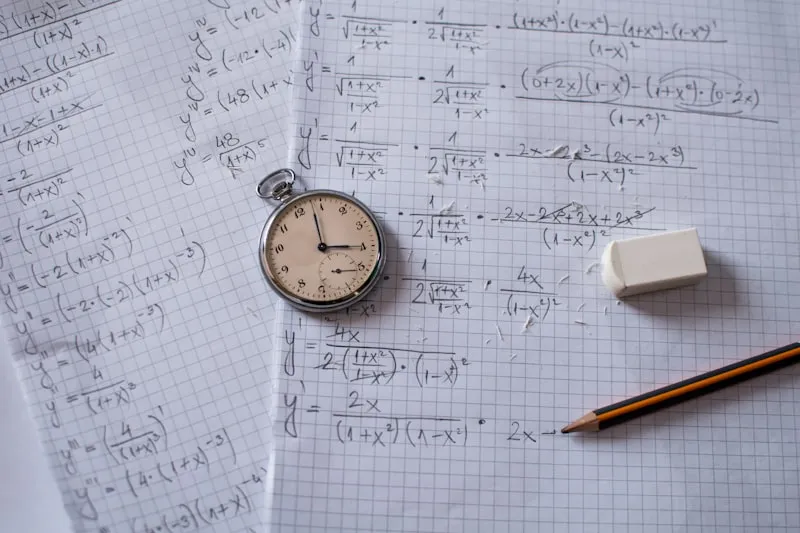 (1+x)²
(1+x)²
1-x-1+x
(1+x)²
-2
(1+x)²
= (-2/(1+x)²)'
y'' = (-2(1+x)⁻²)'
y'' = (-2·(-2)(1+x)⁻³)
y'' = (4(1+x)⁻³)
y'' = 4/(1+x)³
y''' = (4/(1+x)³)'
y''' = (4·(1+x)⁻³)
(4·(-3)(1+x)⁻⁴)
= (-12(1
= (-12·(-4)(
= (48(1+x
= 48/(1+x)⁵
y' = 1/√((1+x²)/(1-x²)) · 1/(2√((1+x²)/(1-x²))) · ((1+x²)'·(1-x²)-(1+x²)·(1-x²)')/(1-x)²
y' = 1/√((1+x²)/(1-x²)) · 1/(2√((1+x²)/(1-x²))) · ((0+2x)(1-x²)-(1+x²)·(0-2x))/(1-x²)²
y' = 1/√((1+x²)/(1-x²)) · 1/(2√((1+x²)/(1-x²))) · (2x-2x³-(2x-2x³))/(1-x²)²
· 1/(2√((1+x²)/(1-x²))) · (2x-2x³+2x+2x³)/(1-x²)²
1-x² · 1/(2√((1+x²)/(1-x²))) · 4x/(1-x²)²
y' = 4x/(2·((1+x²)/(1-x²))·(1-x²)²)
y' = 2x/((1+x²)(1-x²)) · 2x -
12
1
2
4
5
6
7
8
9
10
11